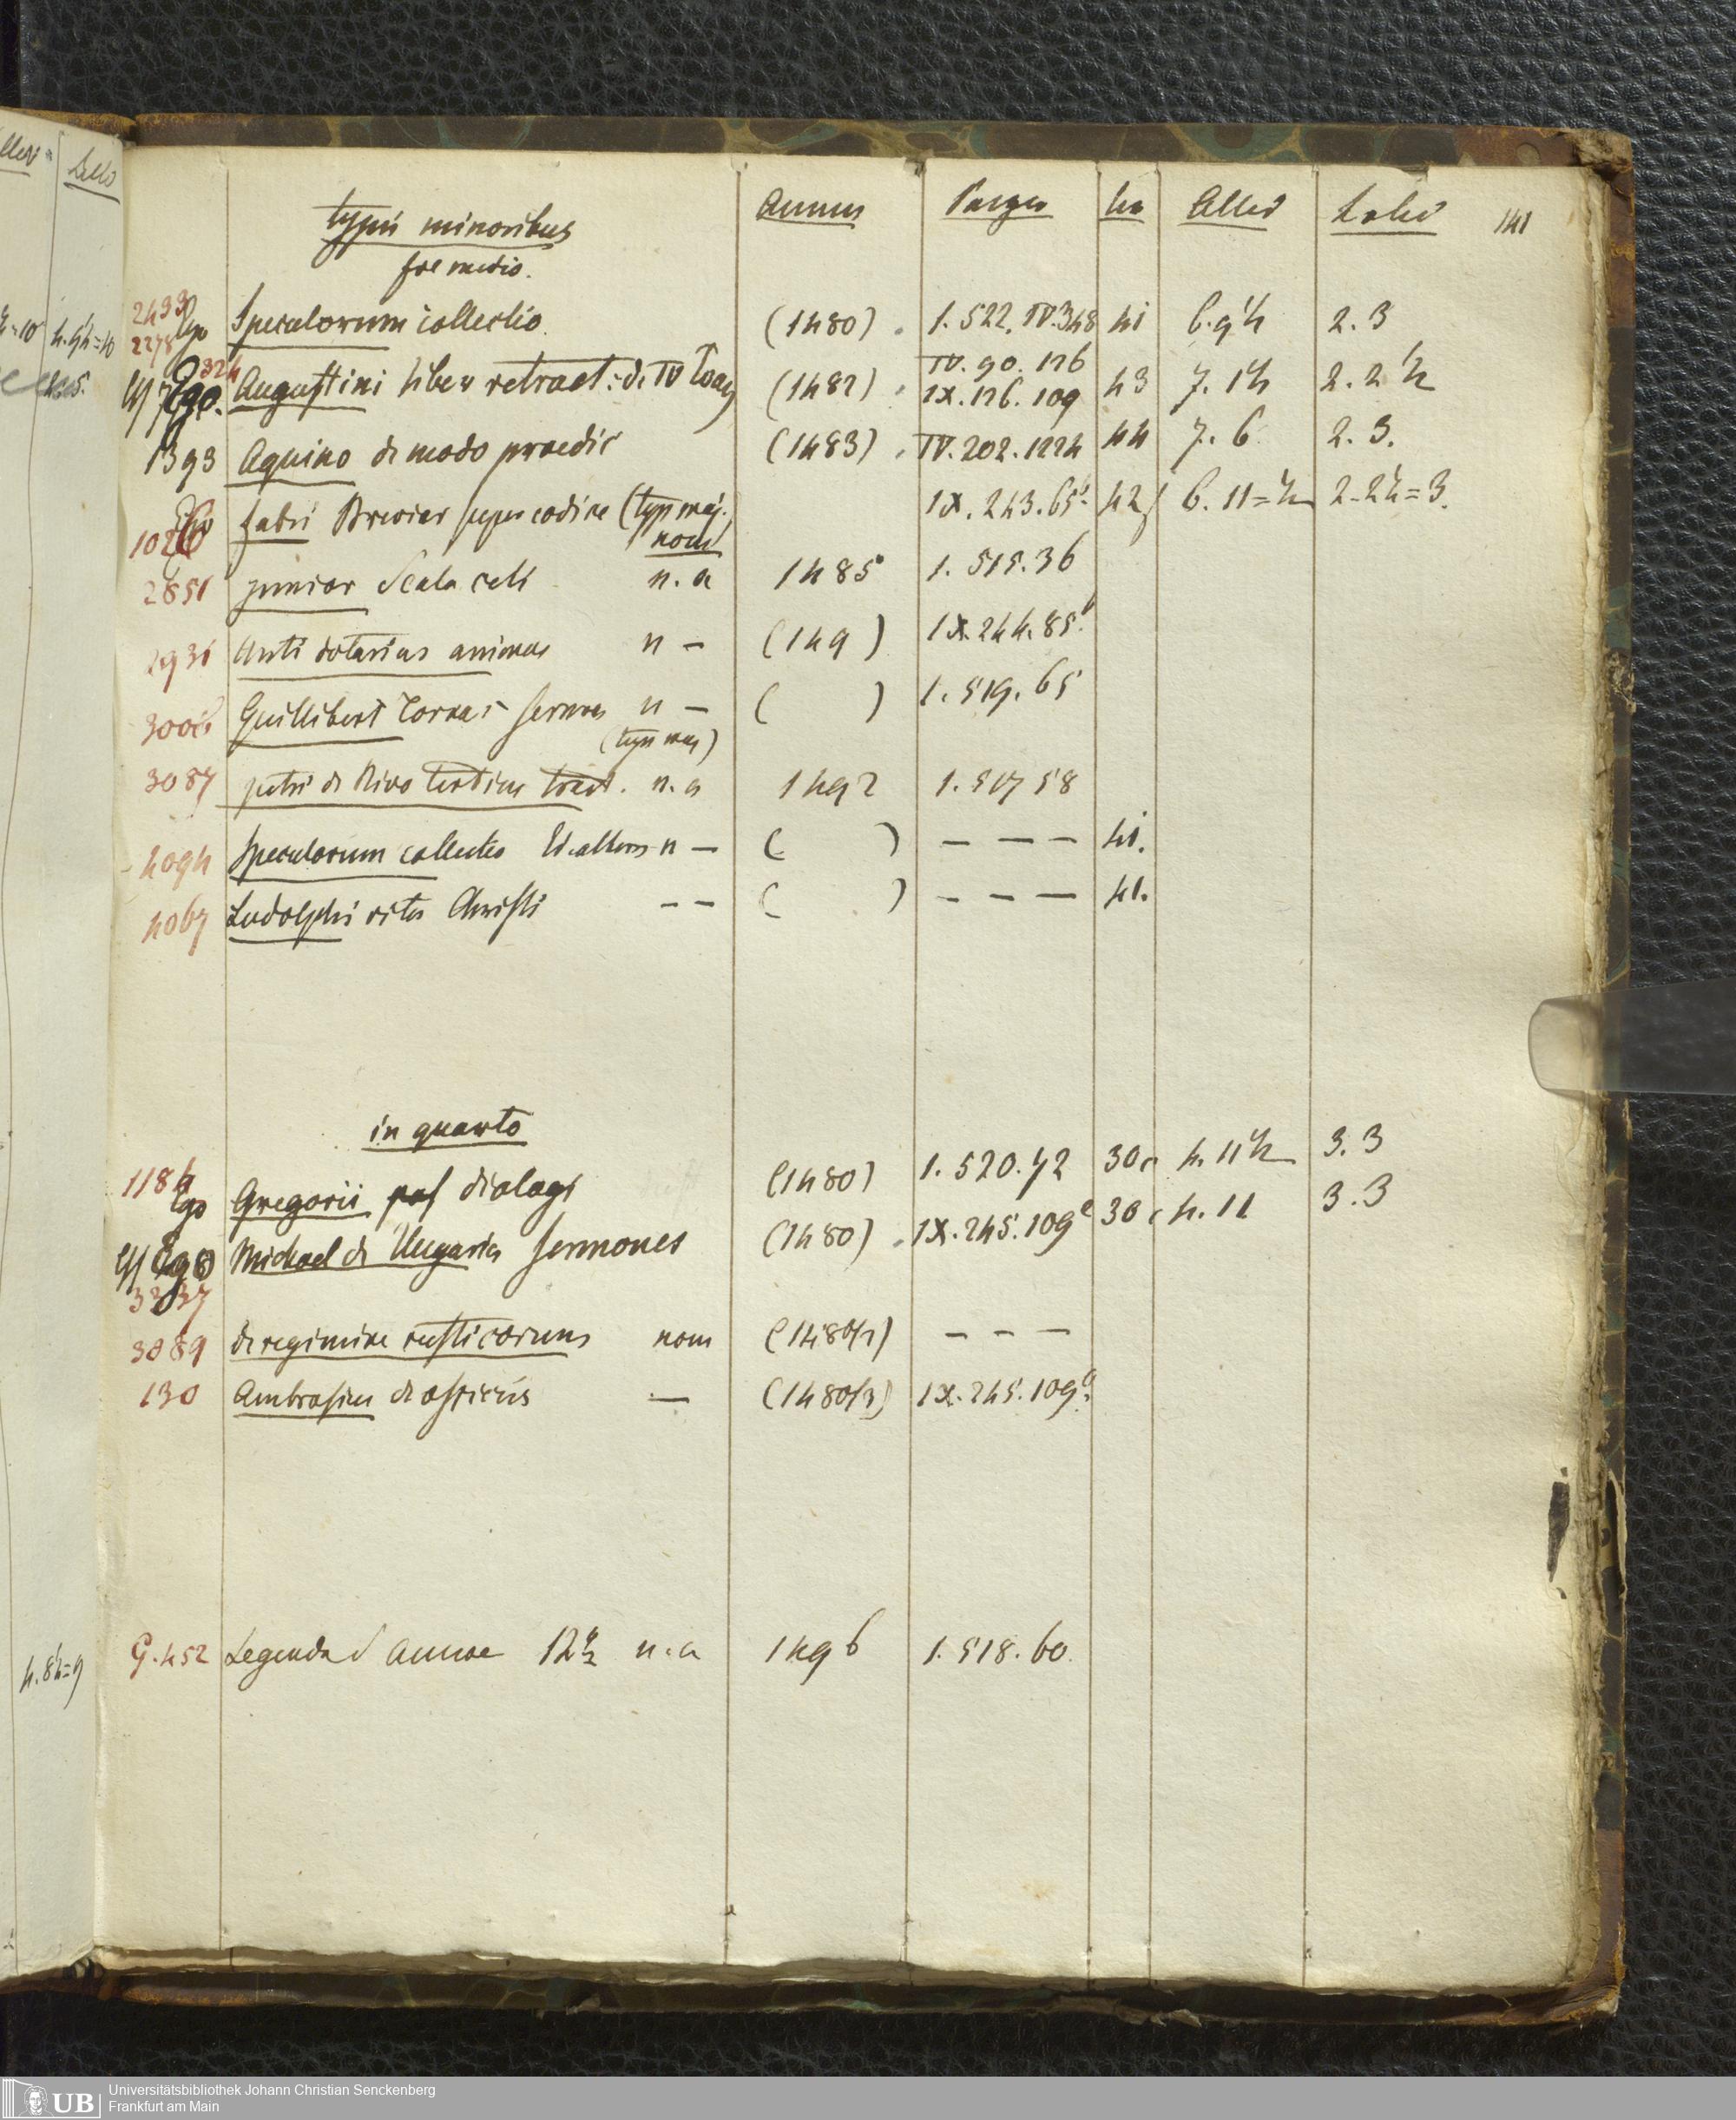 typis minoribus
fol medio.
Annus
Panzer
lin
Altid
Latid
141
2433
2278 Ego
Speculorum collectio
(1480)
1.522. IV.348
41
6.9½
2.3
324
Ego. Augustini liber retract:
(1482)
IV. 90. 126
IX.126. 109
43
7. 1½
2. 2½
1393 Aquino de modo praedic
(1483)
IV.202.1224
44
7. 6
2. 3.
1026 Fabri Breviar super codice (typ maj.)
IX. 243. 65b
42
6. 11=½
2-2½=3.
non
2851 junior Scala celi n. a
1485
1. 515. 36
1931 Antidotarius animae n –
(149 )
IX.244.85b
3006 Guilliberti Tornac sermones n –
( )
1. 519. 65
(typ maj)
3087 petri de Rivo tertius tract. n. a
1492
1. 517 58
4094 Speculorum collectio Ed. altera n –
( )
– – –
41.
4067 Ludolphi vita Christi – –
( )
– – –
41.
in quarto
1184
Ego Gregorii pap dialogi
(1480)
1. 520. 72
30
4. 11½
3. 3
Ego Michael de Ungaria Sermones
(1480)
IX.245.109
30
4. 11
3. 3
3337
3089 de regimine rusticorum non
(1480/1)
– – –
130 Ambrosius de officiis –
(1480/3)
IX.245.109
G.452 Legenda S Annae 12° n. a
1496
1. 518. 60.
4.8½=9
UB
Universitätsbibliothek Johann Christian Senckenberg
Frankfurt am Main